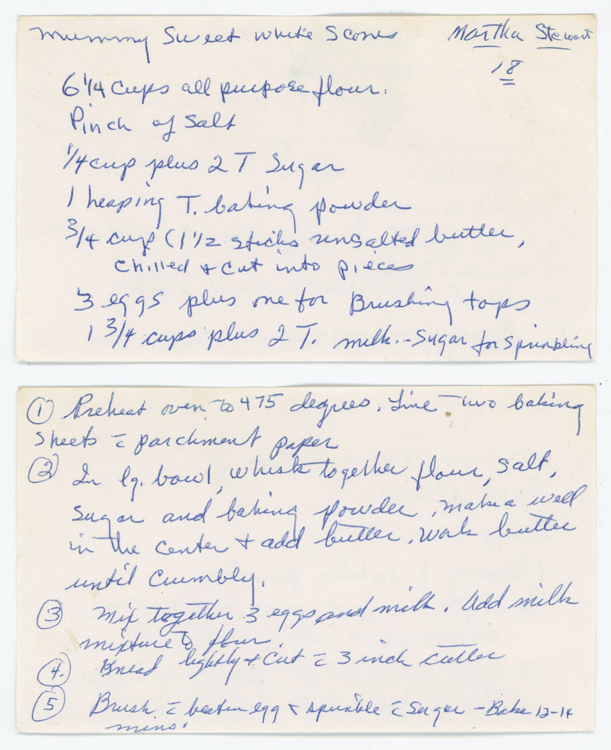 Mummy Sweet White Scones Martha Stewart
18
6 1/4 cups all purpose flour.
Pinch of Salt
1/4 cup plus 2 T Sugar
1 heaping T. baking powder
3/4 cup (1 1/2 sticks unsalted butter,
chilled + cut into pieces
3 eggs plus one for Brushing tops
1 3/4 cups plus 2 T. milk. - Sugar for Sprinkling
① Preheat oven to 475 degrees. Line two baking
Sheets = parchment paper
② In lg. bowl, whisk together flour, salt,
Sugar and baking powder. make a well
in the center + add butter. Work butter
until crumbly.
③ Mix together 3 eggs and milk. Add milk
mixture to flour.
④. Knead lightly + Cut = 3 inch cutter
⑤ Brush = beaten egg + sprinkle = Sugar - Bake 12-14
mins.